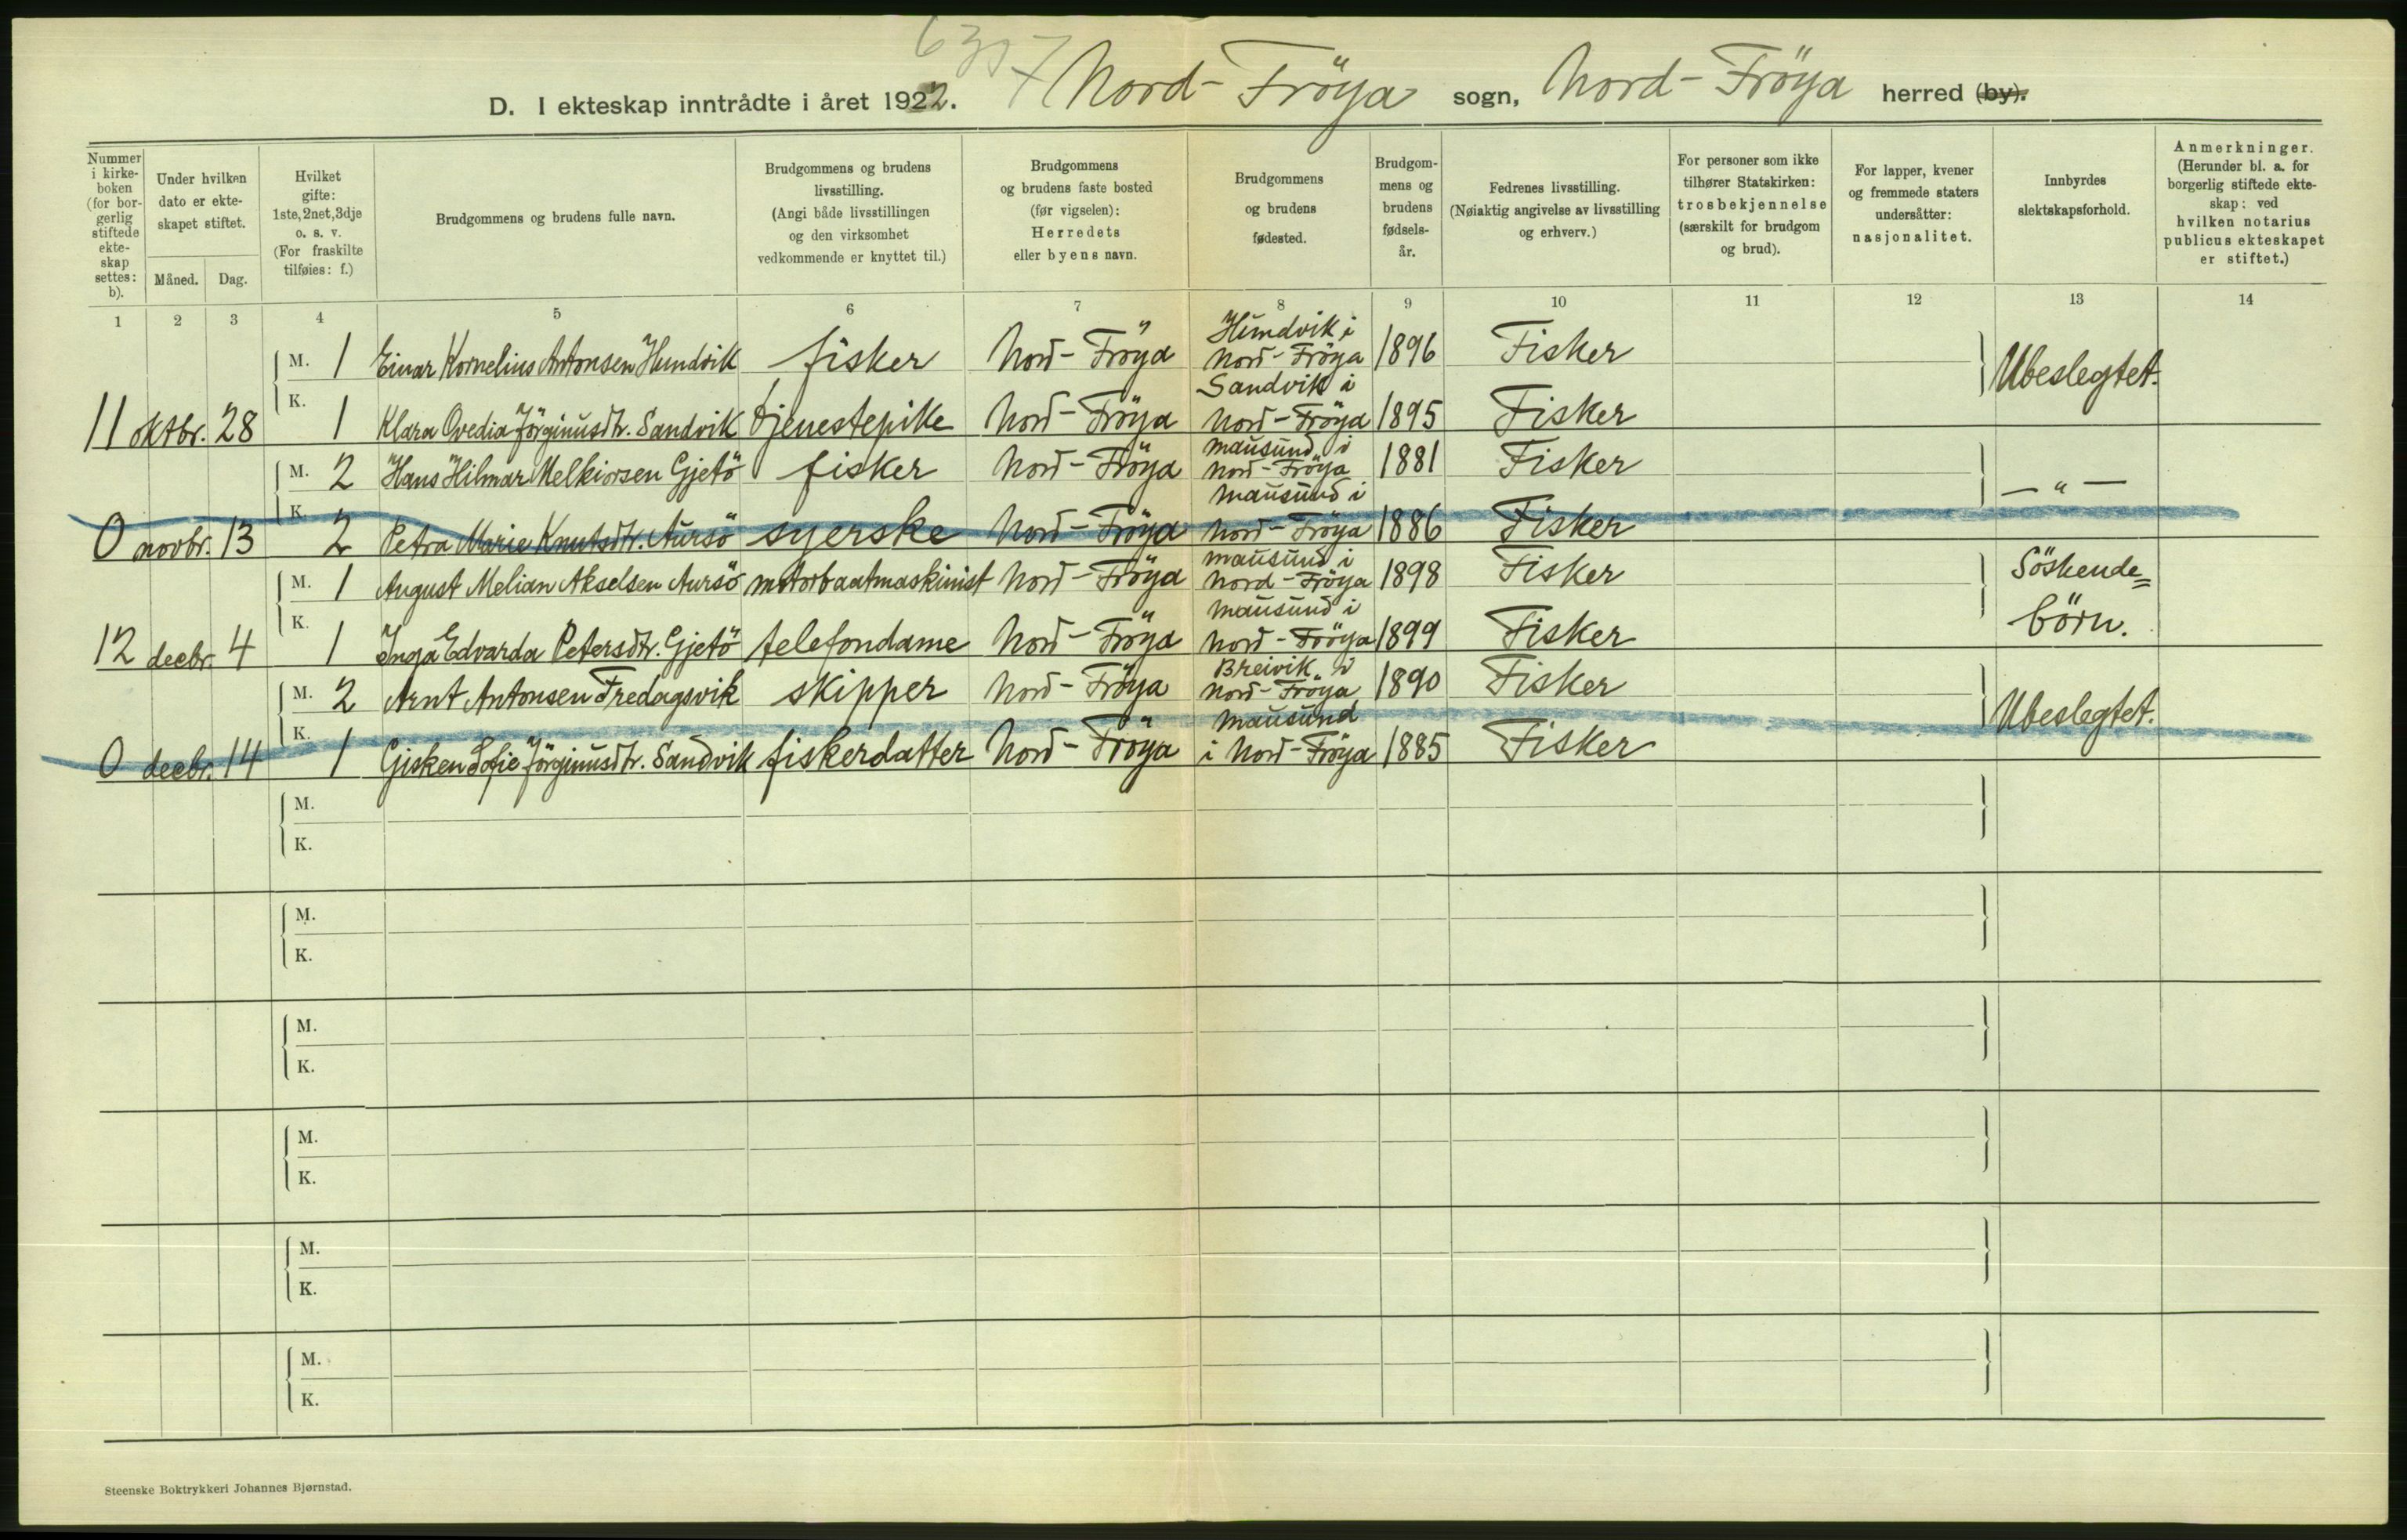 D. I ekteskap inntrådte i året 1922. Nord-Fröya sogn, Nord-Fröya herred (by).
Nummer i kirkeboken (for borgerlig stiftede ekteskap settes: b).
Under hvilken dato er ekteskapet stiftet.
Måned. Dag.
Hvilket gifte: 1ste, 2net, 3dje o. s. v. (For fraskilte tilføies: f.)
Brudgommens og brudens fulle navn.
Brudgommens og brudens livsstilling. (Angi både livsstillingen og den virksomhet vedkommende er knyttet til.)
Brudgommens og brudens faste bosted (før vigselen): Herredets eller byens navn.
Brudgommens og brudens fødested.
Brudgommens og brudens fødselsår.
Fedrenes livsstilling. (Nøiaktig angivelse av livsstilling og erhverv.)
For personer som ikke tilhører Statskirken: trosbekjennelse (særskilt for brudgom og brud).
For lapper, kvener og fremmede staters undersåtter: nasjonalitet.
Innbyrdes slektskapsforhold.
Anmerkninger. (Herunder bl. a. for borgerlig stiftede ekteskap: ved hvilken notarius publicus ekteskapet er stiftet.)
1 2 3 4 5 6 7 8 9 10 11 12 13 14
M. 1 Einar Kornelius Antonsen Hundvik fisker Nord-Fröya Hundvik i Nord-Fröya 1896 Fisker Ubeslegtet.
11 oktbr. 28 K. 1 Klara Ovedia Jörginusdtr. Sandvik tjenestepike Nord-Fröya Sandvik i Nord-Fröya 1895 Fisker
M. 2 Hans Hilmar Melkiorsen Gjetö fisker Nord-Fröya Mausund i Nord-Fröya 1881 Fisker — " —
0 novbr. 13 K. 2 Petra Marie Knutsdtr. Aursö syerske Nord-Fröya Mausund i Nord-Fröya 1886 Fisker
M. 1 August Melian Akselsen Aursö motorbaatmaskinist Nord-Fröya Mausund i Nord-Fröya 1898 Fisker Söskende=
12 decbr. 4 K. 1 Inga Edvarda Petersdtr. Gjetö telefondame Nord-Fröya Mausund i Nord-Fröya 1899 Fisker börn.
M. 2 Arnt Antonsen Fredagsvik skipper Nord-Fröya Breivik i Nord-Fröya 1890 Fisker Ubeslegtet.
0 decbr. 14 K. 1 Gisken Sofie Jörginusdtr. Sandvik fiskerdatter Nord-Fröya Mausund i Nord-Fröya 1885 Fisker
M.
K.
M.
K.
M.
K.
M.
K.
M.
K.
M.
K.
Steenske Boktrykkeri Johannes Bjørnstad.